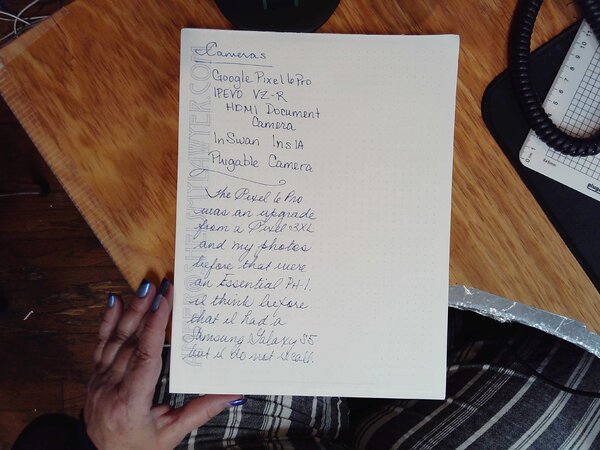 Cameras
Google Pixel 6 Pro
IPEVO VZ-R
HDMI Document
Camera
InSwan Ins1A
Plugable Camera
The Pixel 6 Pro
was an upgrade
from a Pixel 3XL
and my photos
before that were
an Essential PH-1.
I think before
that I had a
Samsung Galaxy S5
but I do not recall.